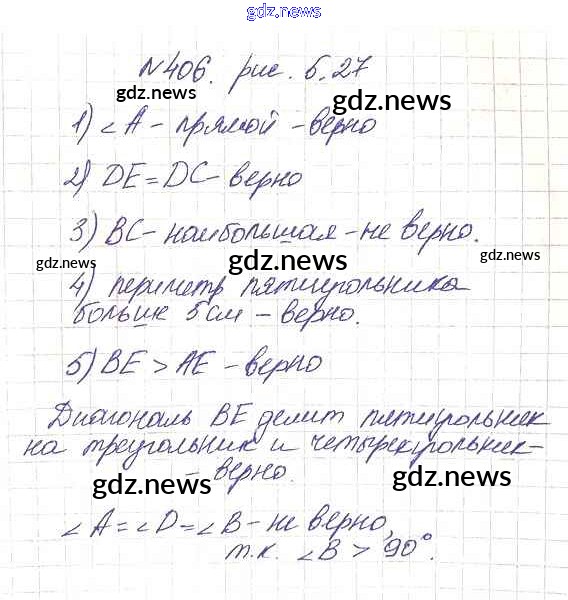 gdz.news
№406. рис. 5.27
gdz.news
gdz.news
1) ∠A - прямой - верно
2) DE = DC - верно
3) BC - наибольшая - не верно.
gdz.news
gdz.news
gdz.news
4) периметр пятиугольника
больше 5 см - верно.
5) BE > AE - верно
Диагональ BE делит пятиугольник
на треугольник и четырехугольник-
- верно.
gdz.news
gdz.news
∠A = ∠D = ∠B - не верно,
т.к. ∠B > 90°.